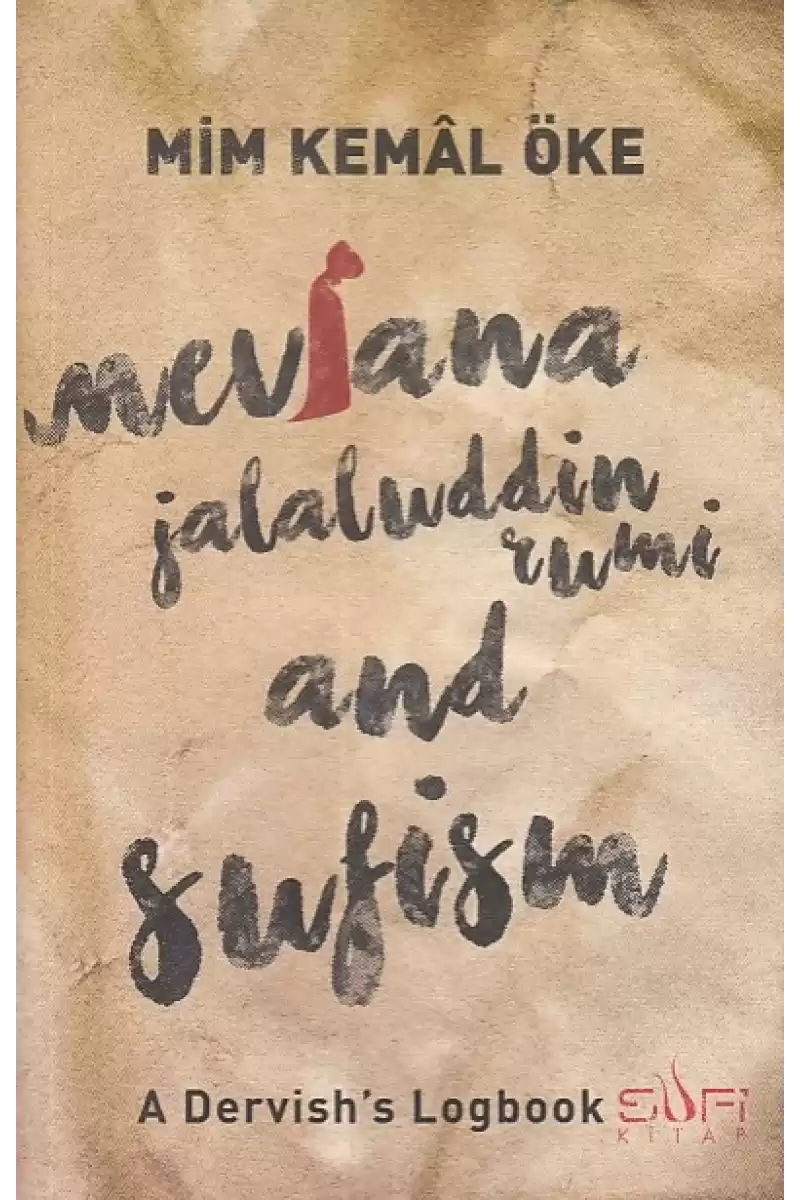 MİM KEMÂL ÖKE
mevlana
jalaluddin
rumi
and
sufism
A Dervish's Logbook
SUFİ
KİTAP